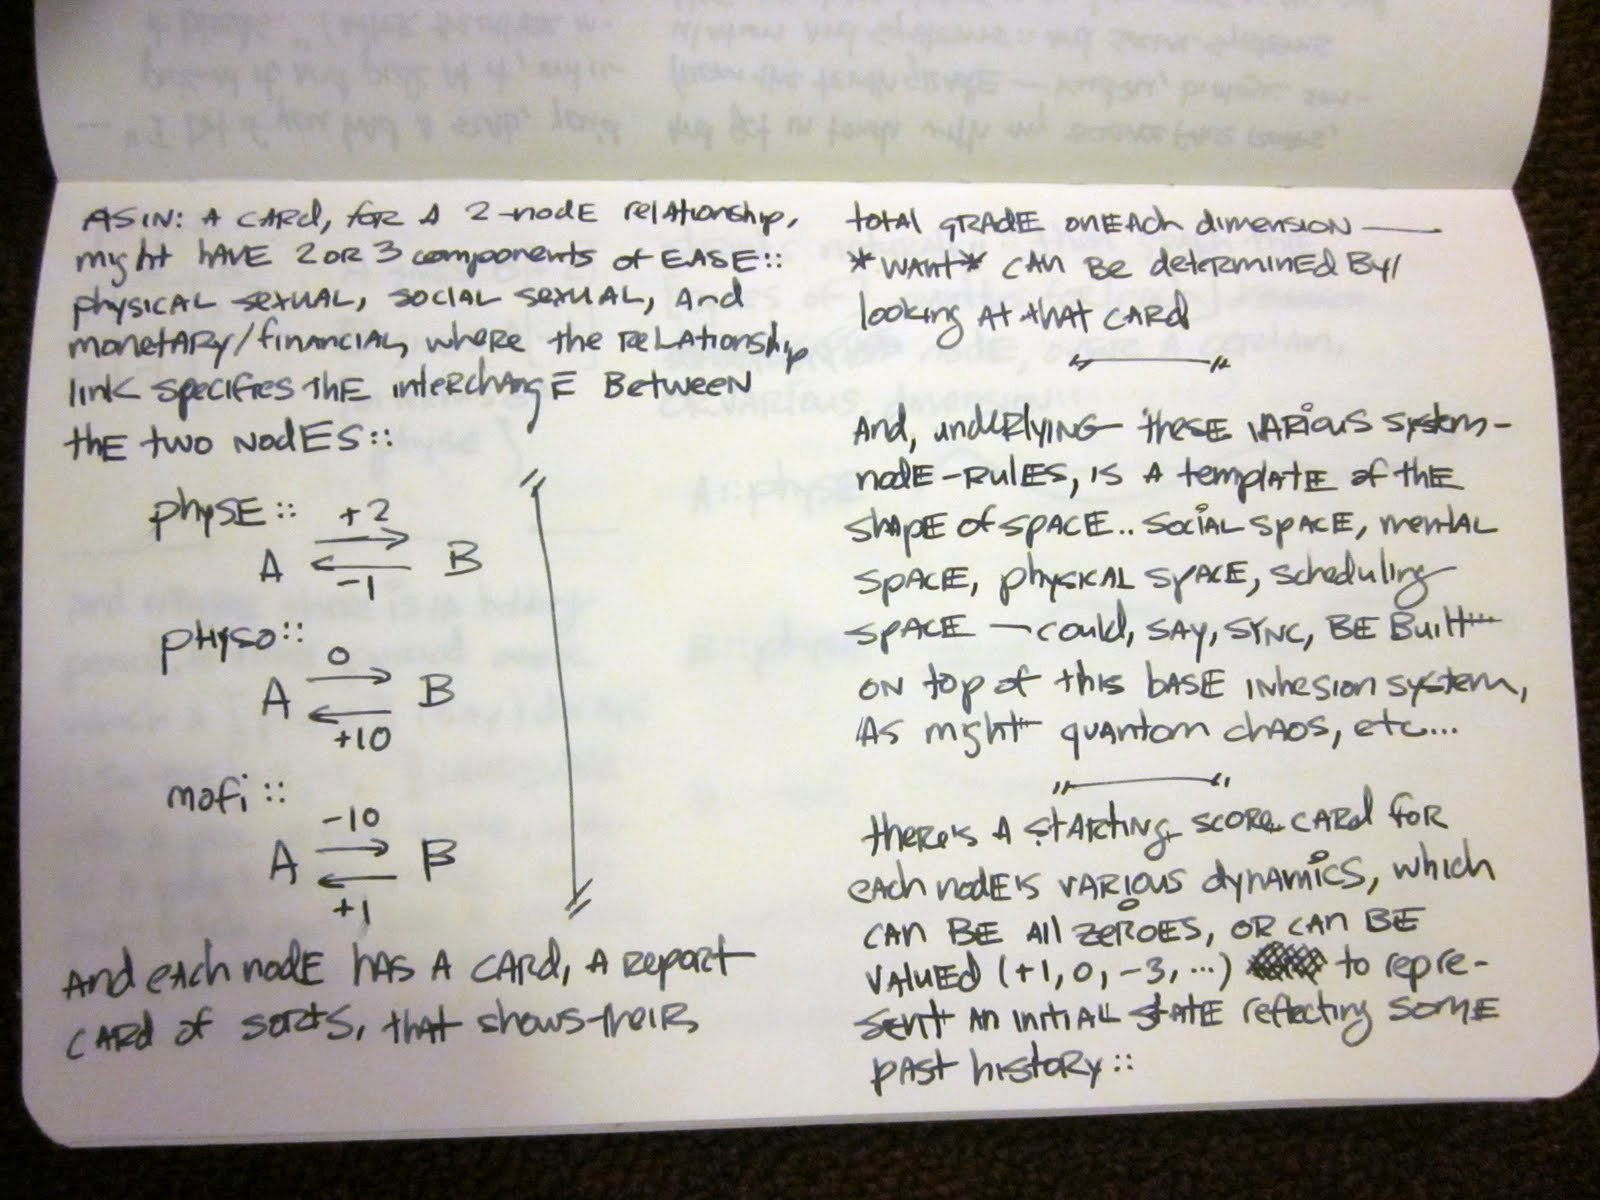 AS IN: A CARD, FOR A 2-NODE RELATIONSHIP,
MIGHT HAVE 2 OR 3 COMPONENTS OF EASE::
PHYSICAL SEXUAL, SOCIAL SEXUAL, AND
MONETARY/FINANCIAL, WHERE THE RELATIONSHIP
LINK SPECIFIES THE INTERCHANGE BETWEEN
THE TWO NODES::
PHYSE::
+2
A B
-1
PHYSO::
0
A B
+10
MOFI::
-10
A B
+1
AND EACH NODE HAS A CARD, A REPORT
CARD OF SORTS, THAT SHOWS THEIR
TOTAL GRADE ON EACH DIMENSION —
*WANT* CAN BE DETERMINED BY/
LOOKING AT THAT CARD
AND, UNDERLYING THESE VARIOUS SYSTEM-
NODE-RULES, IS A TEMPLATE OF THE
SHAPE OF SPACE.. SOCIAL SPACE, MENTAL
SPACE, PHYSICAL SPACE, SCHEDULING
SPACE — COULD, SAY, SYNC, BE BUILT
ON TOP OF THIS BASE INHESION SYSTEM,
AS MIGHT QUANTOM CHAOS, ETC...
THERE'S A STARTING SCORE CARD FOR
EACH NODE'S VARIOUS DYNAMICS, WHICH
CAN BE ALL ZEROES, OR CAN BE
VALUED (+1, 0, -3, ...) TO REPRE-
SENT AN INITIAL STATE REFLECTING SOME
PAST HISTORY::